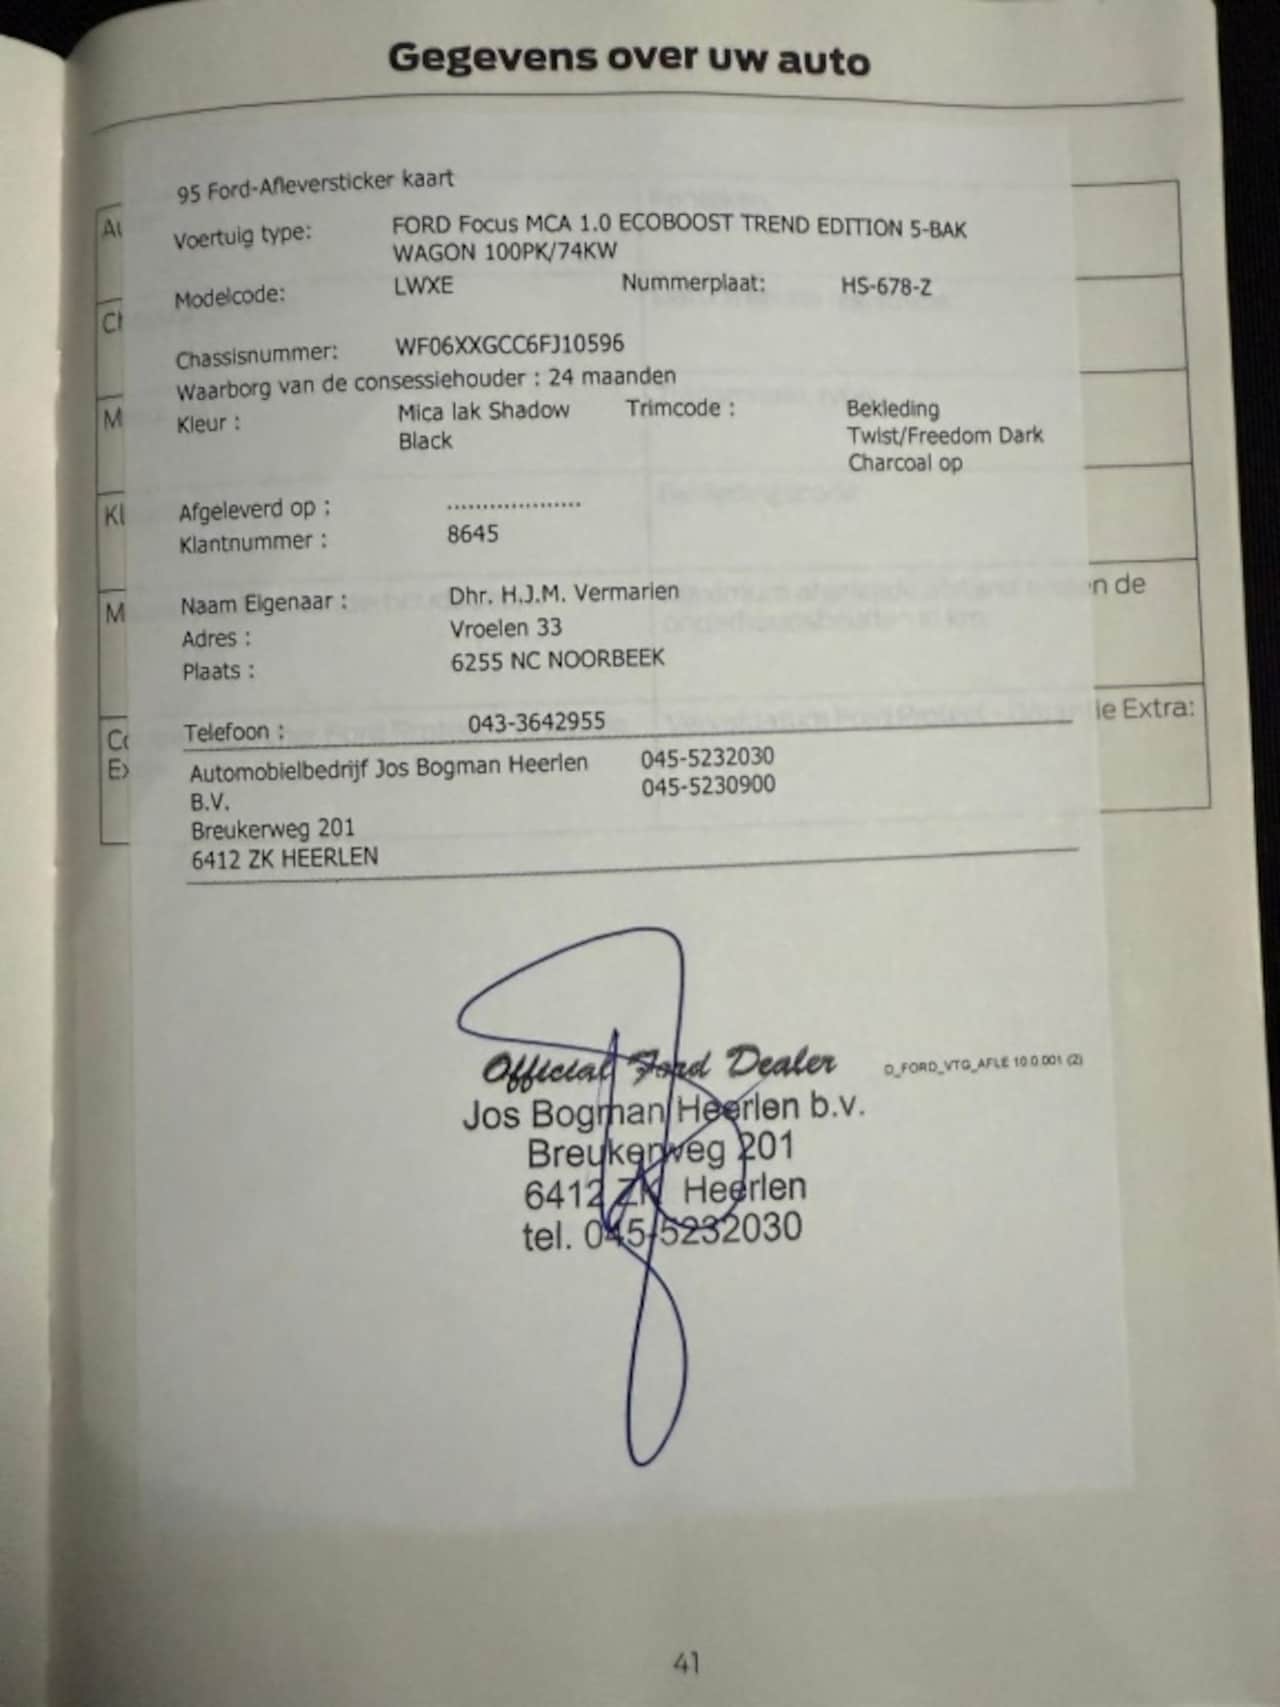 Gegevens over uw auto
95 Ford-Afleversticker kaart
Voertuig type: FORD Focus MCA 1.0 ECOBOOST TREND EDITION 5-BAK
WAGON 100PK/74KW
Modelcode: LWXE Nummerplaat: HS-678-Z
Chassisnummer: WF06XXGCC6FJ10596
Waarborg van de consessiehouder : 24 maanden
Kleur : Mica lak Shadow Trimcode : Bekleding
Black Twist/Freedom Dark
Charcoal op
Afgeleverd op : ...................
Klantnummer : 8645
Naam Eigenaar : Dhr. H.J.M. Vermarien
Adres : Vroelen 33
Plaats : 6255 NC NOORBEEK
n de
Telefoon : 043-3642955
ie Extra:
Automobielbedrijf Jos Bogman Heerlen 045-5232030
B.V. 045-5230900
Breukerweg 201
6412 ZK HEERLEN
Official Ford Dealer D_FORD_VTG_AFLE 10.0.001 (2)
Jos Bogman Heerlen b.v.
Breukerweg 201
6412 ZK Heerlen
tel. 045-5232030
41